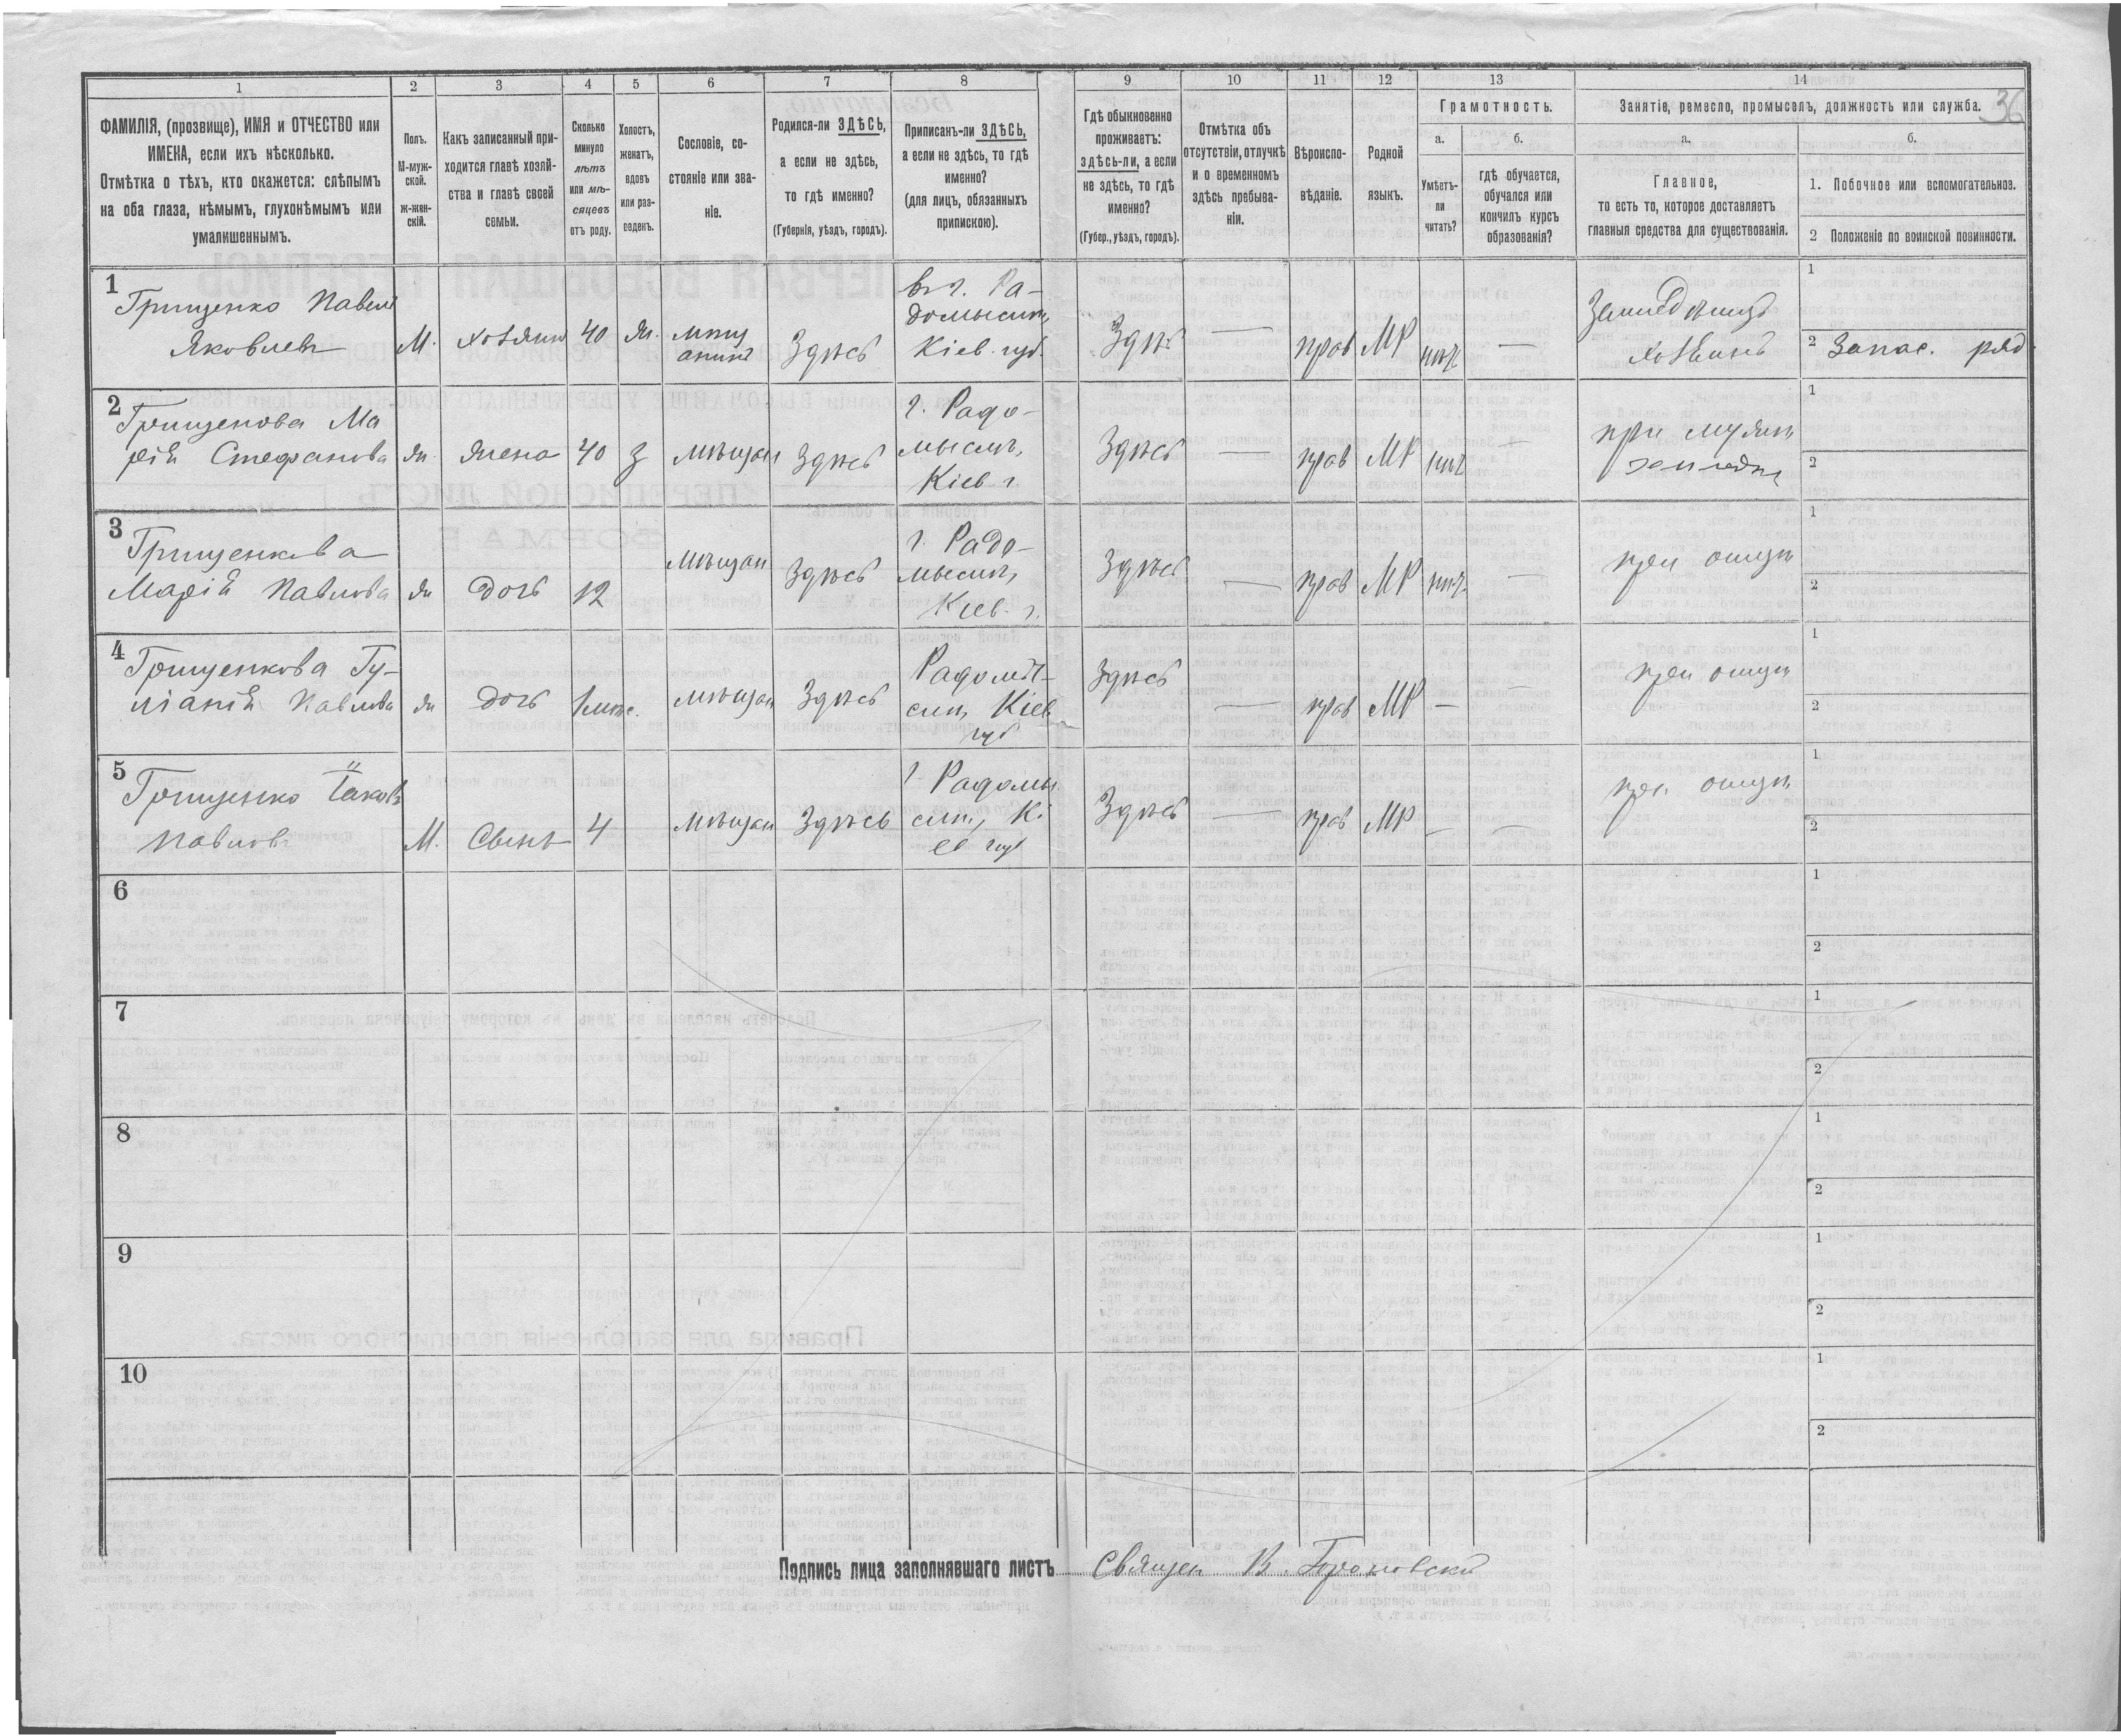 1 2 3 4 5 6 7 8 9 10 11 12 13 14
ФАМИЛІЯ, (прозвище), ИМЯ и ОТЧЕСТВО или
ИМЕНА, если ихъ нѣсколько.
Отмѣтка о тѣхъ, кто окажется: слѣпымъ
на оба глаза, нѣмымъ, глухонѣмымъ или
умалишеннымъ.
Полъ.
М-муж-
ской.
ж-жен-
скій.
Какъ записанный при-
ходится главѣ хозяй-
ства и главѣ своей
семьи.
Сколько
минуло
лѣтъ
или мѣ-
сяцевъ
отъ роду.
Холостъ,
женатъ,
вдовъ
или раз-
веденъ.
Сословіе, со-
стояніе или зва-
ніе.
Родился-ли ЗДѢСЬ,
а если не здѣсь,
то гдѣ именно?
(Губернія, уѣздъ, городъ).
Приписанъ-ли ЗДѢСЬ,
а если не здѣсь, то гдѣ
именно?
(для лицъ, обязанныхъ
припискою).
Гдѣ обыкновенно
проживаетъ:
здѣсь-ли, а если
не здѣсь, то гдѣ
именно?
(Губер., уѣздъ, городъ).
Отмѣтка объ
отсутствіи, отлучкѣ
и о временномъ
здѣсь пребыва-
ніи.
Вѣроиспо-
вѣданіе.
Родной
языкъ.
Грамотность.
а.
Умѣетъ-
ли
читать?
б.
гдѣ обучается,
обучался или
кончилъ курсъ
образованія?
Занятіе, ремесло, промыселъ, должность или служба.
36
а.
Главное,
то есть то, которое доставляетъ
главныя средства для существованія.
б.
1. Побочное или вспомогательное.
2 Положеніе по воинской повинности.
1
Грищенко Павелъ
Яковлевъ
М. хозяинъ 40 ж. мѣщ
анинъ
Здѣсь
въ г. Ра-
домыслѣ,
Кіев. губ.
Здѣсь — прав МР —
Земледѣлецъ
хозяинъ
1
2 Запас. ряд.
2
Грищенкова Ма
рія Стефанова
ж. жена 40 з мѣщан Здѣсь
г. Радо-
мыслѣ,
Кіев г.
Здѣсь — прав МР —
при мужѣ
1
2
3
Грищенкова
Марія Павлова
ж дочь 12 мѣщан Здѣсь
г. Радо-
мыслѣ,
Кіев. г.
Здѣсь — прав МР —
при отцѣ
1
2
4
Грищенкова
Павлова
ж дочь мѣщан Здѣсь
Радомы-
слѣ, Кіев
губ
Здѣсь — прав МР — —
при отцѣ
1
2
5
Грищенко Іаковъ
Павловъ
М. Сынъ 4 мѣщан Здѣсь
г. Радомы
слѣ, Кі
ев губ
Здѣсь — прав МР — —
при отцѣ
1
2
6
1
2
7
1
2
8
1
2
9
1
2
10
1
2
Подпись лица заполнявшаго листъ Священ В.